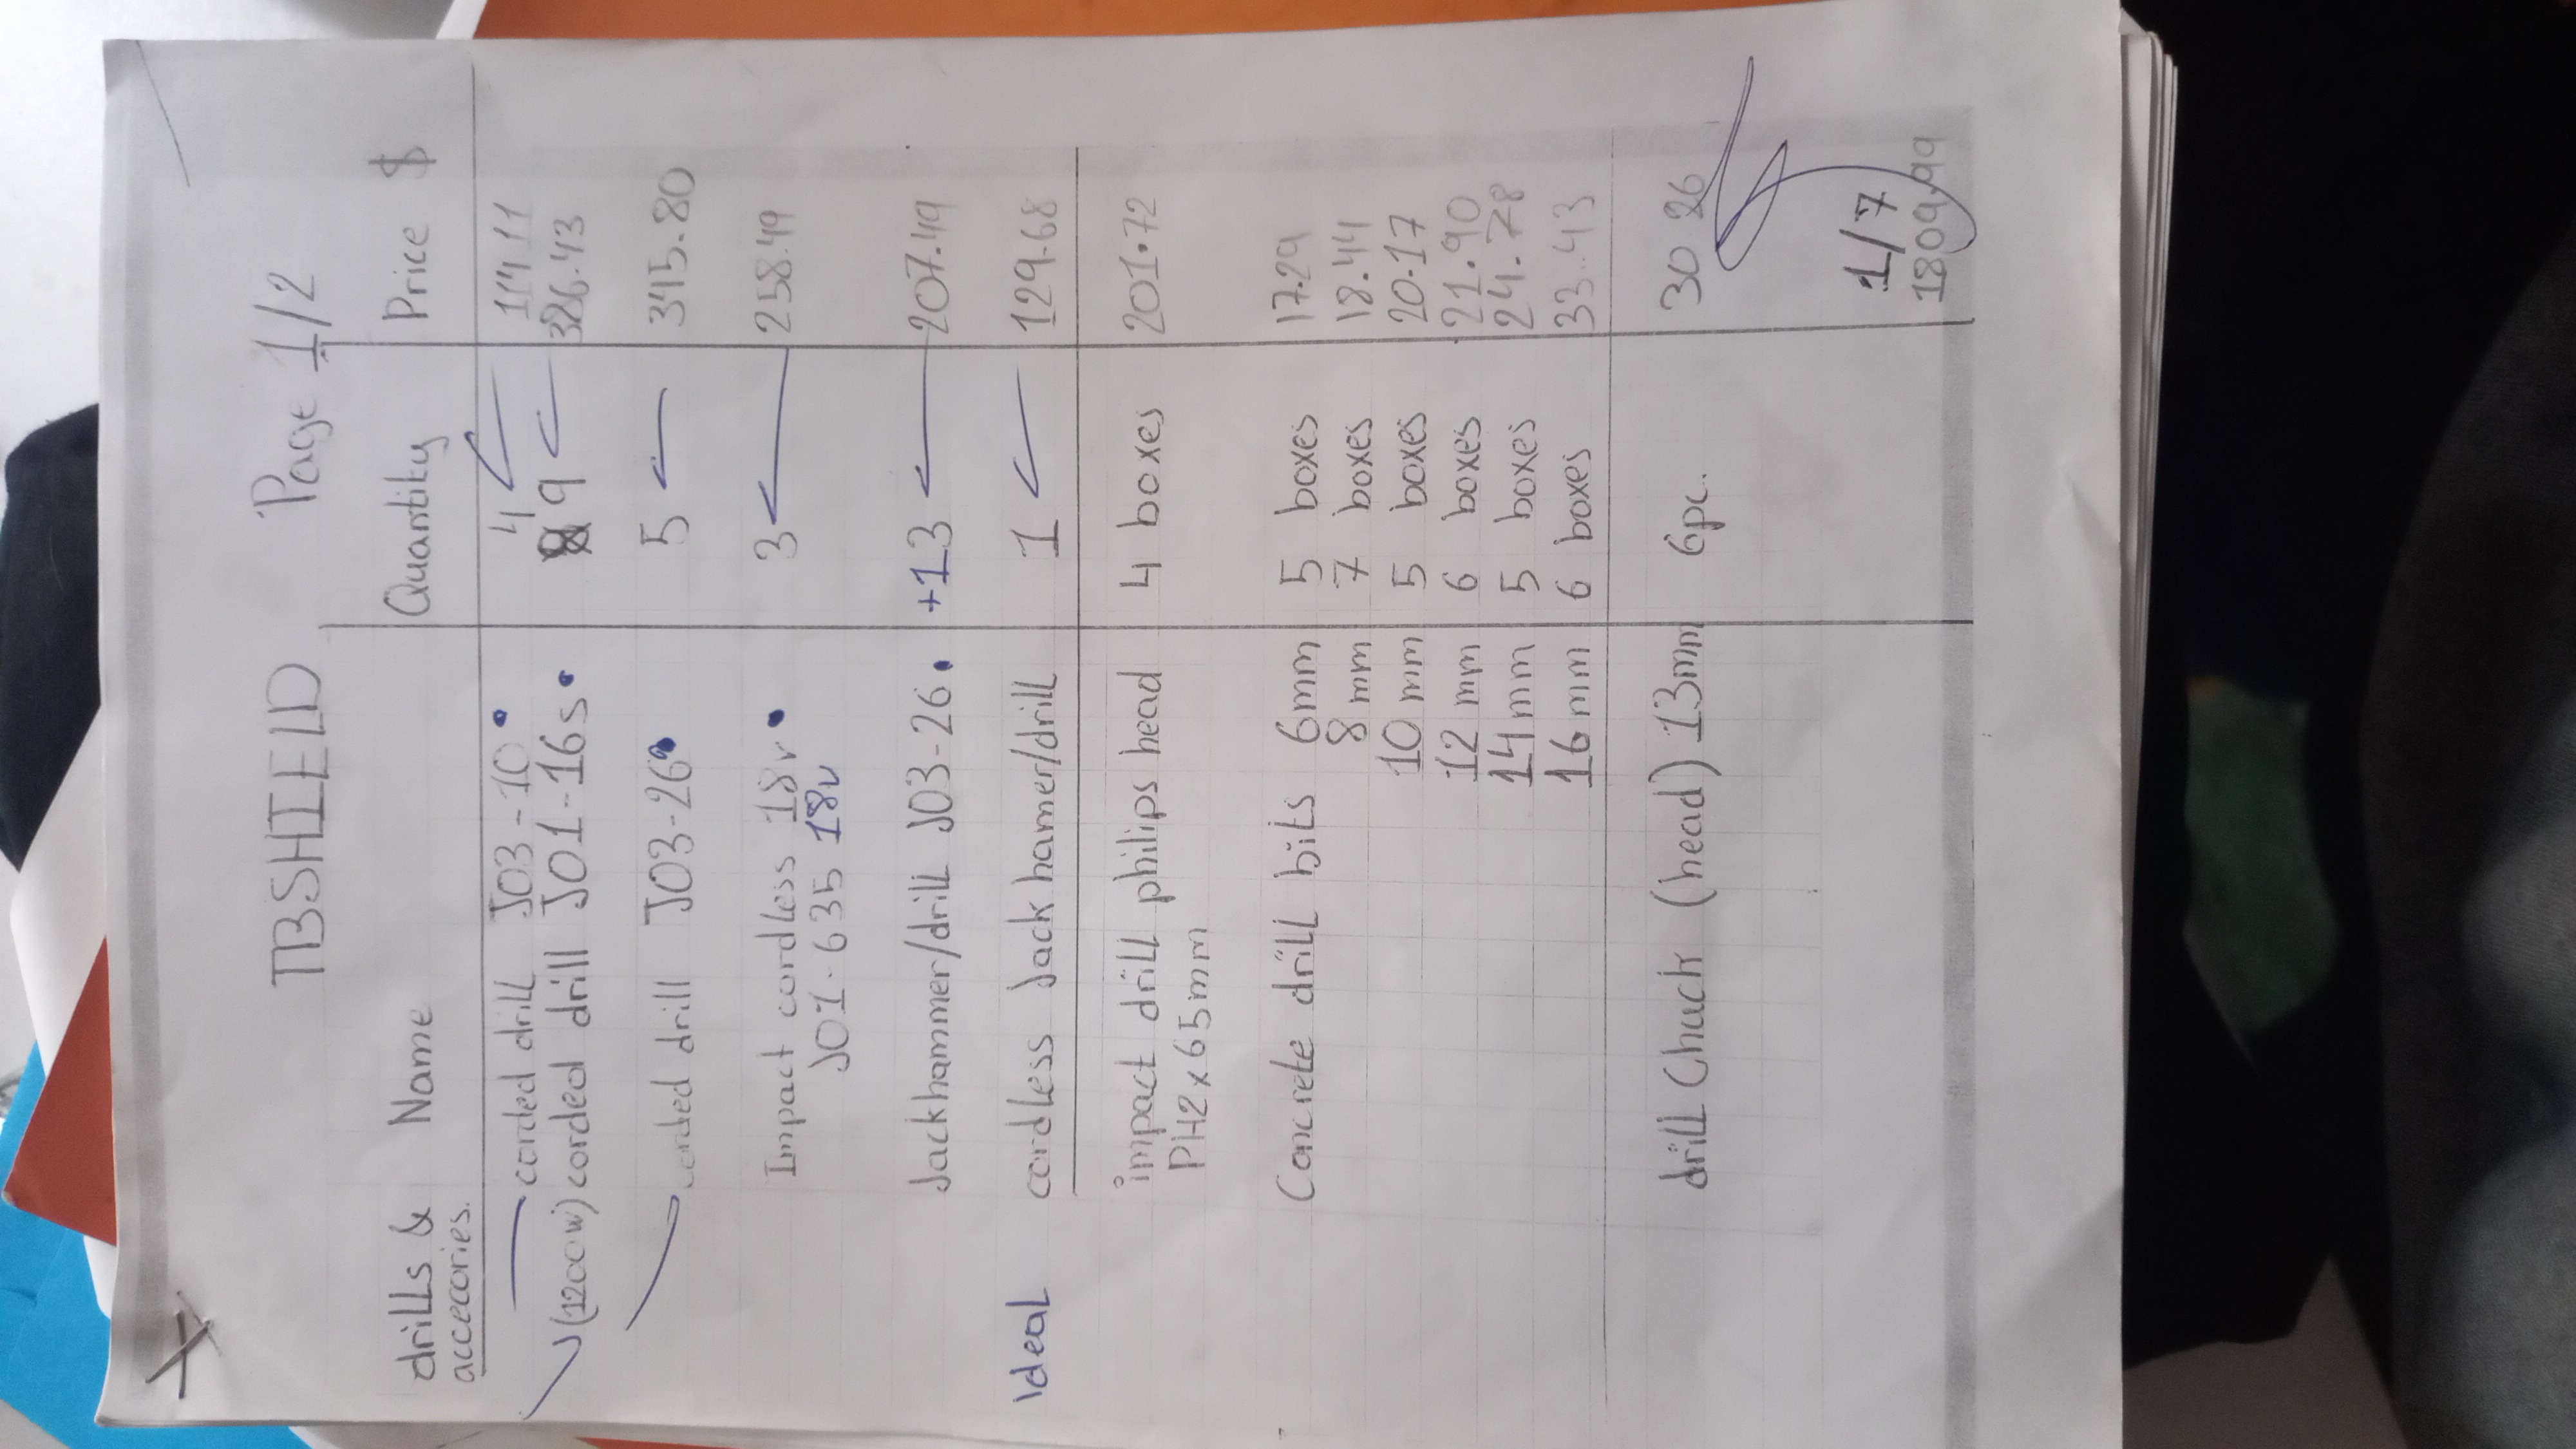 TBSHIELD Page 1/2
drills & accecories. Name Quantity Price $
corded drill J03-10 4
(1200w) corded drill J01-16s 9 386.43
corded drill J03-26 5 345.80
Impact cordless 18v 3 258.49
J01-635 18v
Jackhammer/drill J03-26 +13 207.49
Ideal cordless Jack hamer/drill 1 129.68
impact drill philips head 4 boxes 201.72
PH2x65mm
Concrete drill bits 6mm 5 boxes 17.29
8mm 7 boxes 18.44
10mm 5 boxes 20.17
12mm 6 boxes 21.90
14mm 5 boxes 24.78
16mm 6 boxes 33.43
drill Chuck (head) 13mm 6pc. 30 26
1/7
1809.99